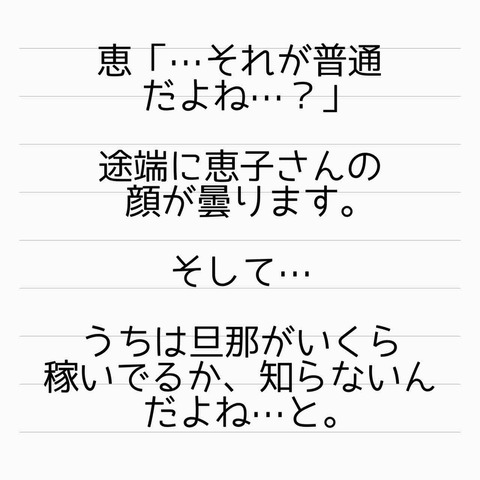 恵「…それが普通
だよね…？」
途端に恵子さんの
顔が曇ります。
そして…
うちは旦那がいくら
稼いでるか、知らないん
だよね…と。